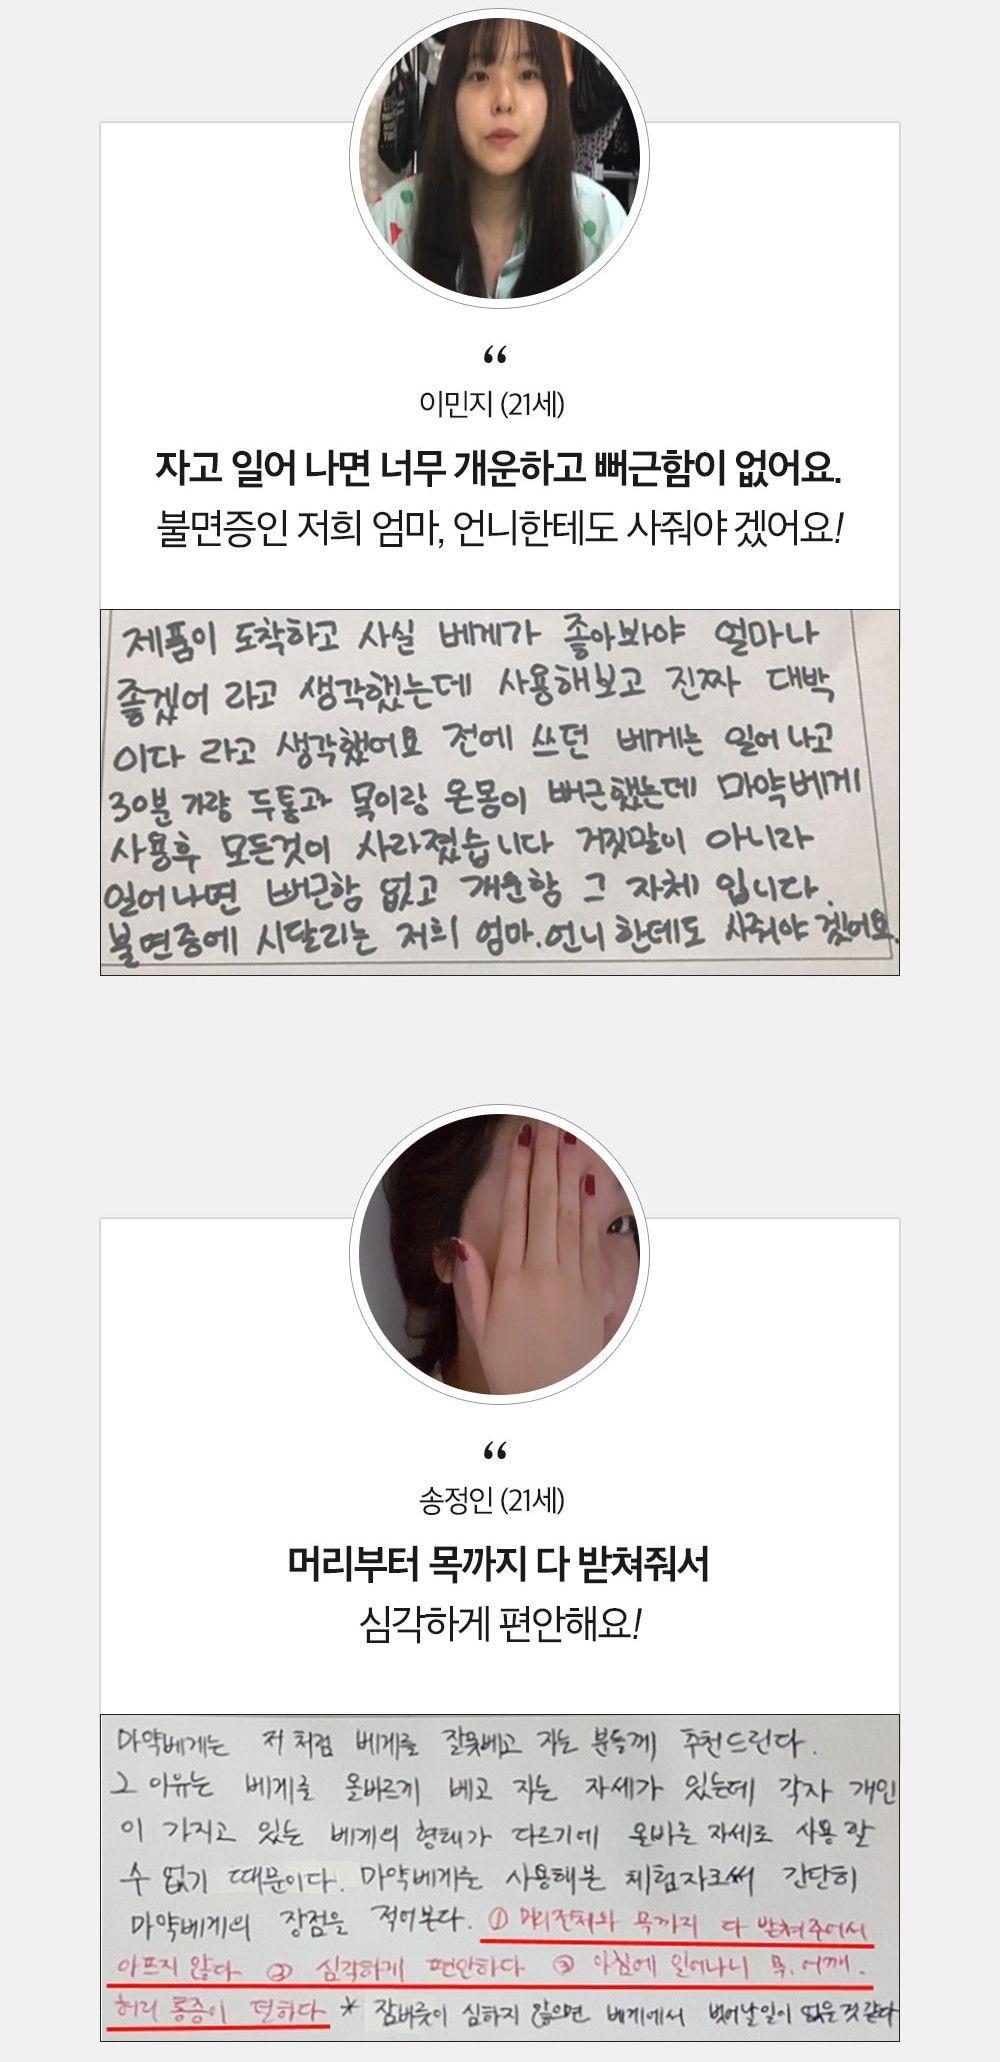 “
이민지 (21세)
자고 일어 나면 너무 개운하고 뻐근함이 없어요.
불면증인 저희 엄마, 언니한테도 사줘야 겠어요!
제품이 도착하고 사실 베게가 좋아봐야 얼마나
좋겠어 라고 생각했는데 사용해보고 진짜 대박
이다 라고 생각했어요 전에 쓰던 베게는 일어나고
30분 가량 두통과 목이랑 온몸이 뻐근했는데 마약베게
사용후 모든것이 사라졌습니다 거짓말이 아니라
일어나면 뻐근함 없고 개운함 그 자체 입니다.
불면증에 시달리는 저희 엄마.언니한테도 사줘야 겠어요.
“
송정인 (21세)
머리부터 목까지 다 받쳐줘서
심각하게 편안해요!
마약베게는 저처럼 베게를 잘못베고 자는 분들께 추천드린다.
그 이유는 베게를 올바르게 베고 자는 자세가 있는데 각자 개인
이 가지고 있는 베게의 형태가 다르기에 올바른 자세로 사용 할
수 없기 때문이다. 마약베게를 사용해본 체험자로써 간단히
마약베게의 장점을 적어본다. ① 머리전체와 목까지 다 받쳐주어서
아프지 않다 ② 심각하게 편안하다 ③ 아침에 일어나니 목.어깨.
허리 통증이 덜하다 * 잠버릇이 심하지 않으면 베게에서 벗어날일이 없을것같다